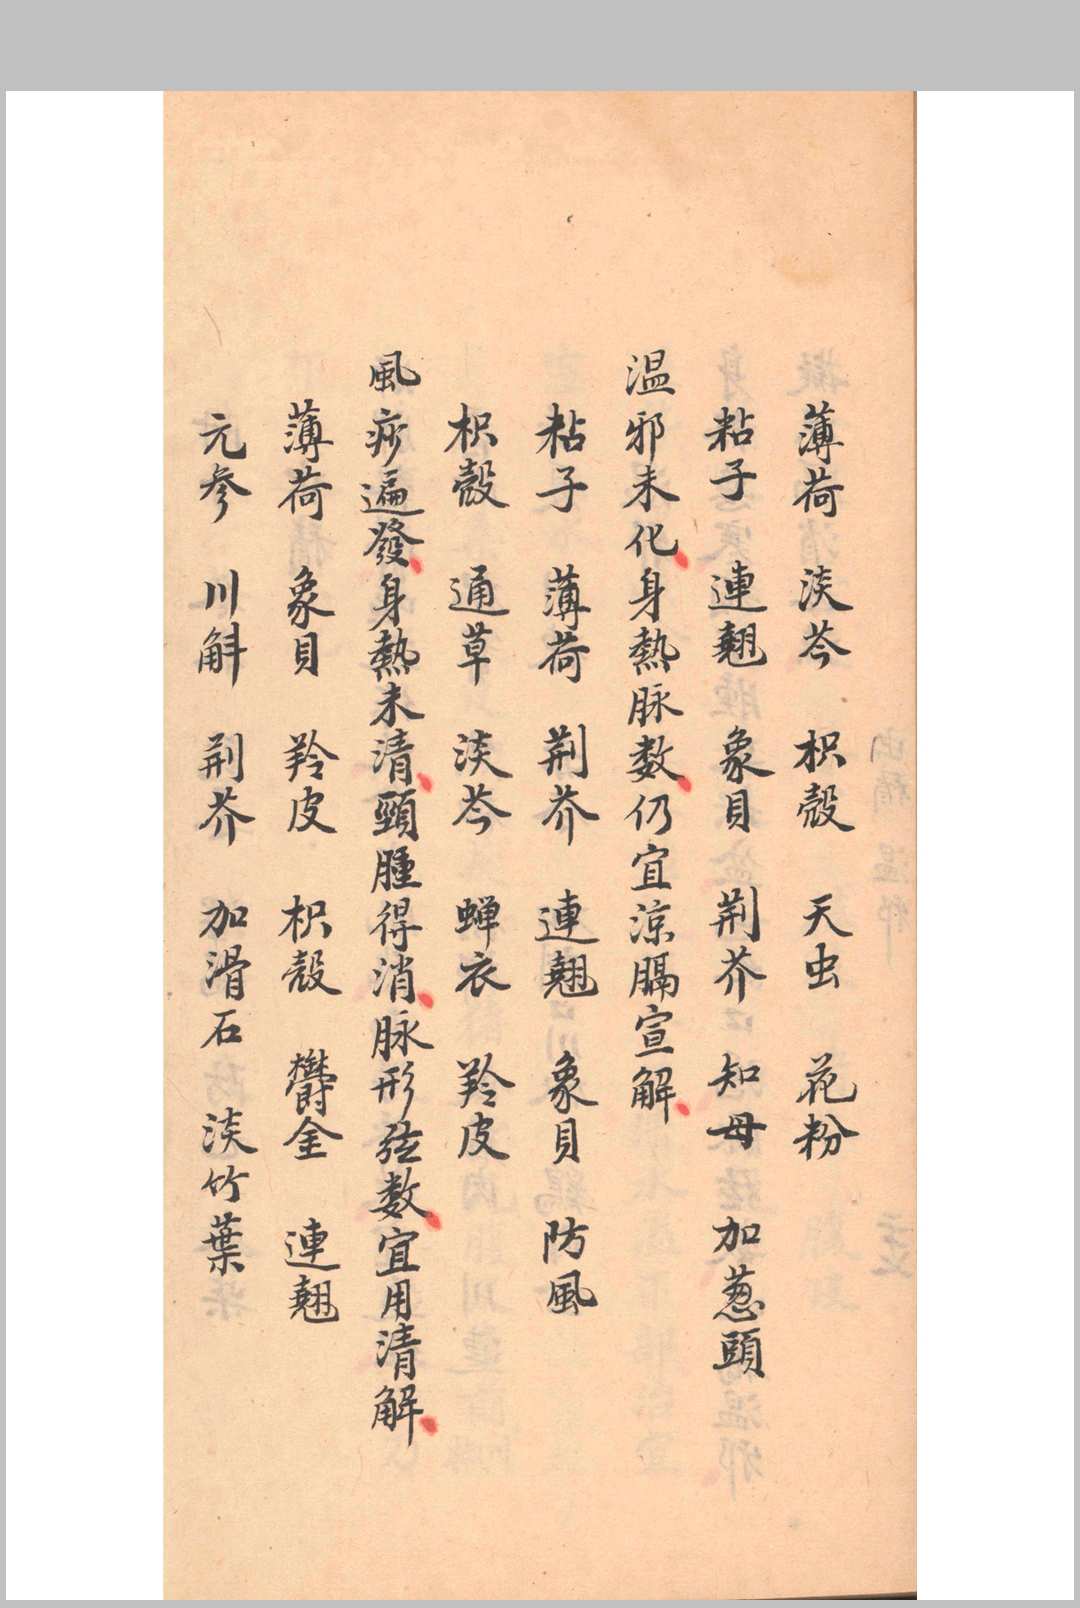 薄荷 淡芩 枳殼 天虫 花粉
粘子 連翹 象貝 荆芥 知母 加葱頭
温邪未化身熱脉数仍宜凉膈宣解
粘子 薄荷 荆芥 連翹 象貝 防風
枳殼 通草 淡芩 蝉衣 羚皮
風痧遍發身熱未清頸腫得消脉形弦数宜用清解
薄荷 象貝 羚皮 枳殼 欎金 連翹
元参 川斛 荆芥 加滑石 淡竹葉